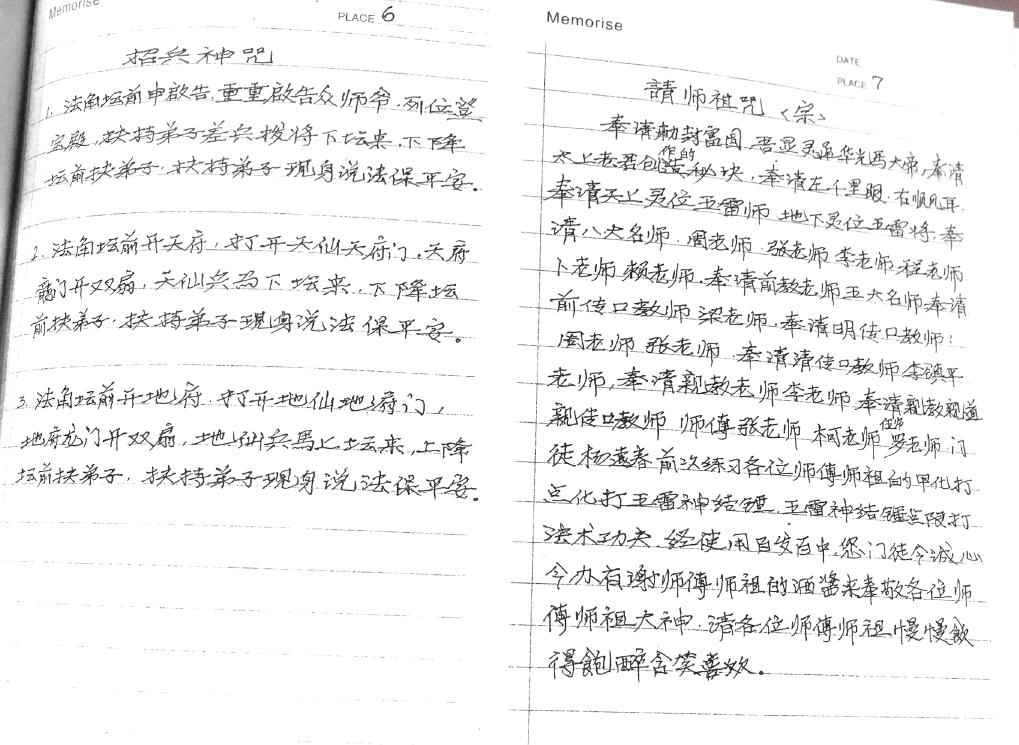 Memorise
PLACE 6
招兵神咒
1. 法角坛前申啟告,重重啟告众师爷,列位登
宝殿,扶持弟子差兵拨将下坛来,下下降
坛前扶弟子,扶持弟子现身说法保平安。
2. 法角坛前开天府,打开天仙天府门,天府
龍门开双扇,天仙兵马下坛来,下下降坛
前扶弟子,扶持弟子现身说法保平安。
3. 法角坛前开地府,打开地仙地府门,
地府龙门开双扇,地仙兵馬上坛来,上降
坛前扶弟子,扶持弟子现身说法保平安。
Memorise
DATE
PLACE 7
請师祖咒〈宗〉
奉请勅封富国,吾显灵通华光西大帝,奉请
太上老君创造作的秘决,奉请左千里眼,右顺风耳,
奉请天上灵位五雷师,地下灵位五雷将,奉
请八大名师,周老师,张老师,李老师,程老师
卜老师,赖老师,奉请前教老师五大名师,奉请
前传口教师梁老师,奉请明传口教师:
周老师,张老师,奉请清传口教师李鎮平
老师,奉请親教老师李老师,奉请親教親道
親传口教师,师傅张老师,柯老师,罗老师,门
徒杨遠春前次练习各位师傅师祖的甲化打
点化打五雷神结锤,五雷神结锤 限打
法术功夫,经使用百发百中,您门徒今诚心
今办有谢师傅师祖的酒醬来奉敬各位师
傅师祖大神,请各位师傅师祖慢慢飲
得飽醉含笑喜欢。